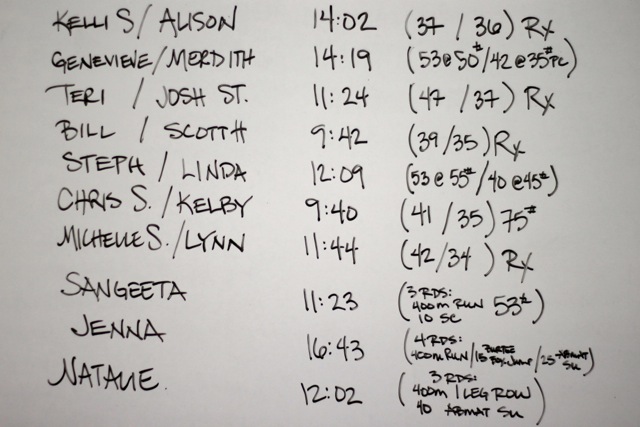 KELLI S / ALISON 14:02 (37 / 36) Rx
GENEVIEVE/MERDITH 14:19 (53@50#/42@35#PC)
TERI / JOSH ST. 11:24 (47 / 37) Rx
BILL / SCOTTH 9:42 (39/35) Rx
STEPH / LINDA 12:09 (53 @ 55#/40 @45#)
CHRIS S. / KELBY 9:40 (41 / 35) 75#
MICHELLE S. / LYNN 11:44 (42/34) Rx
SANGEETA 11:23 (3 RDS:
400m RUN 53#)
10 SC
JENNA 16:43 (4 RDS:
400m RUN/15 BURPEE BOX JUMP/25 ABMAT SU)
NATALIE. 12:02 (3 RDS:
400m 1 LEG ROW
40 ABMAT SU)